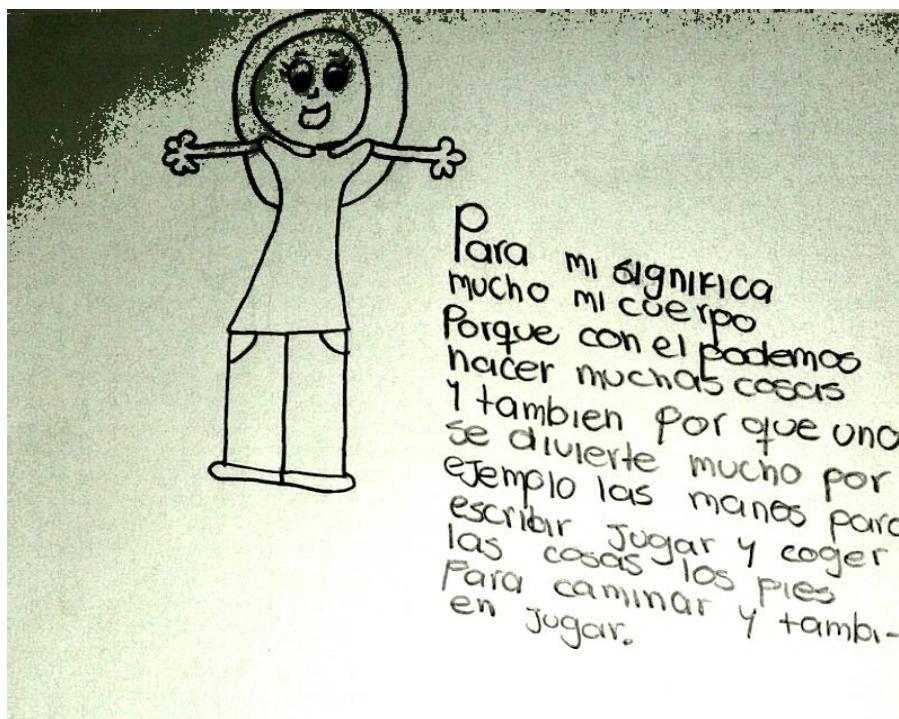 Para mi significa
mucho mi cuerpo
Porque con el podemos
hacer muchas cosas
y tambien por que uno
se divierte mucho por
ejemplo las manos para
escribir jugar y coger
las cosas los pies
Para caminar y tambi-
en jugar.